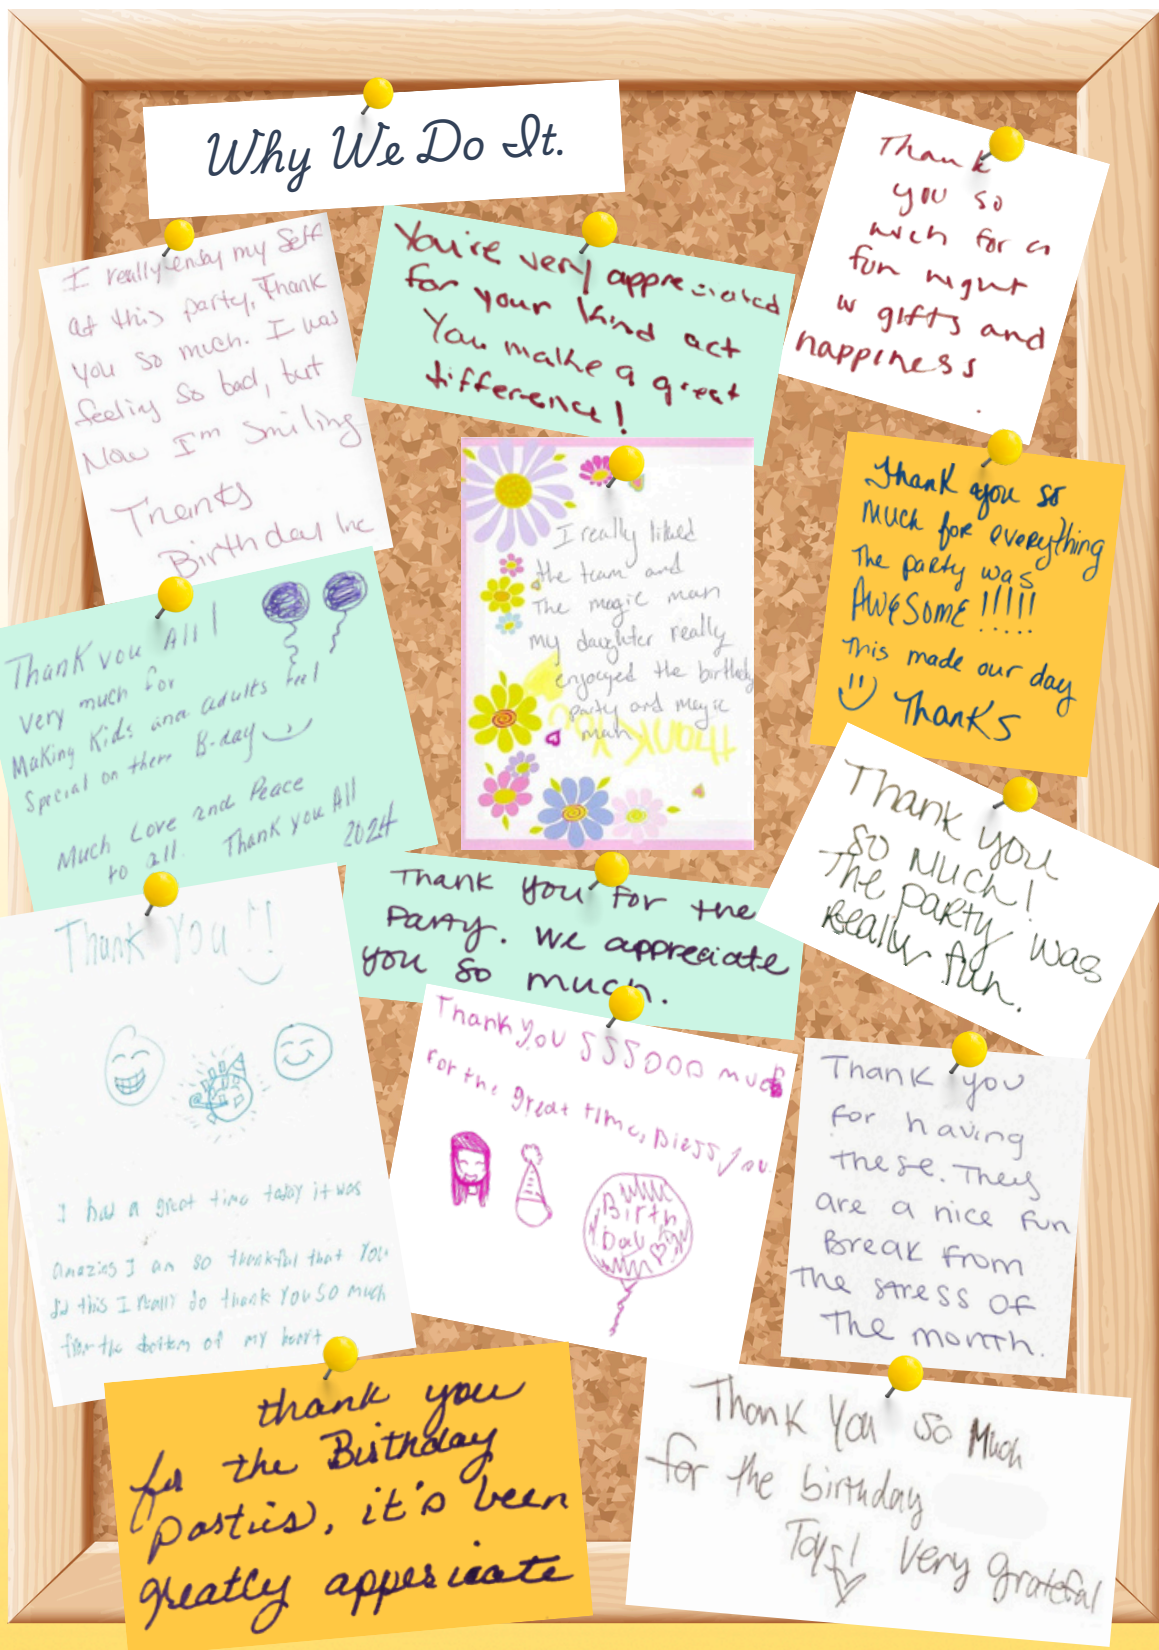 Why We Do It.
I really enjoy my Self
at this party, Thank
you so much. I was
feeling so bad, but
Now I'm smiling
Thanks
Birthday Inc
You're very appreciated
for your kind act
You make a great
difference!
Thank
you so
much for a
fun night
w gifts and
happiness
I really liked
the team and
The magic man
my daughter really
enjoyed the birthday
party and magic
man.
THANK YOU
Thank you so
much for everything
The party was
AWESOME !!!!!
This made our day
Thanks
Thank you All!
very much for
Making Kids and adults feel
Special on there B-day
Much Love and Peace
to all. Thank you All
2024
Thank you
so much!
The party was
Really fun.
Thank you for the
Party. We appreciate
you so much.
Thank You!!
I had a great time today it was
amazing I am so thankful that you
did this I really do thank you so much
from the bottom of my heart
Thank you SSSOOO much
for the great time, bless you.
Birth
Day
Thank you
for having
these. They
are a nice fun
Break from
the stress of
the month.
thank you
for the Birthday
Parties, it's been
greatly appreciate
Thank You So Much
for the birthday
Toys! Very grateful